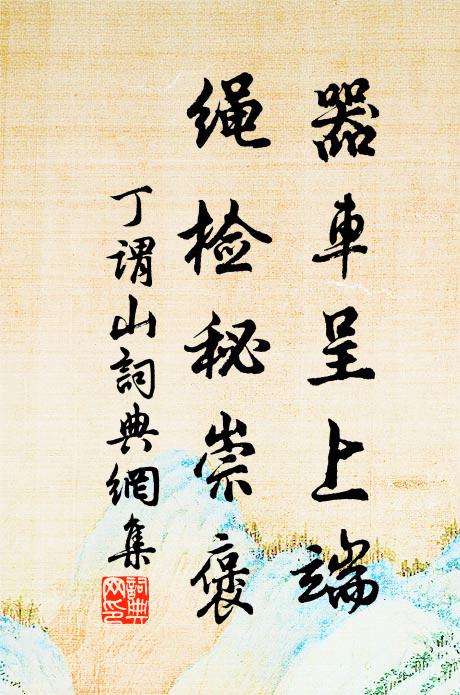 器車呈上端
绳检秘崇褒
丁謂山詞典網集